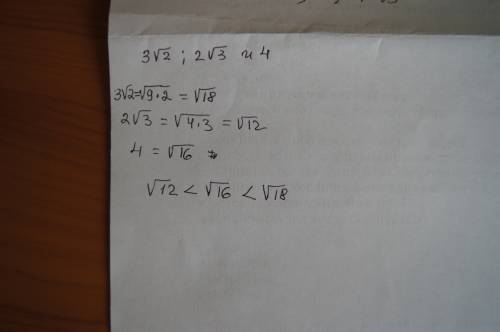 3√2 ; 2√3 и 4
3√2=√9·2 = √18
2√3 = √4·3 = √12
4 = √16
√12 < √16 < √18